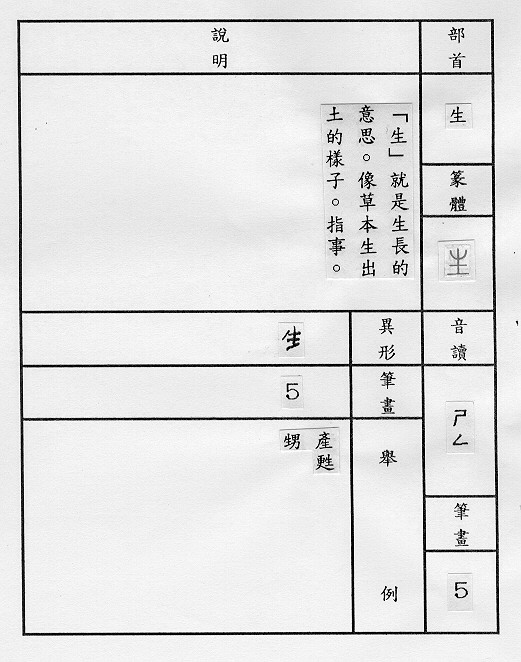 部首
生
篆體
生
音讀
ㄕㄥ
筆畫
5
說明
「生」就是生長的
意思。像草本生出
土的樣子。指事。
異形
生
筆畫
5
舉例
產甦
甥